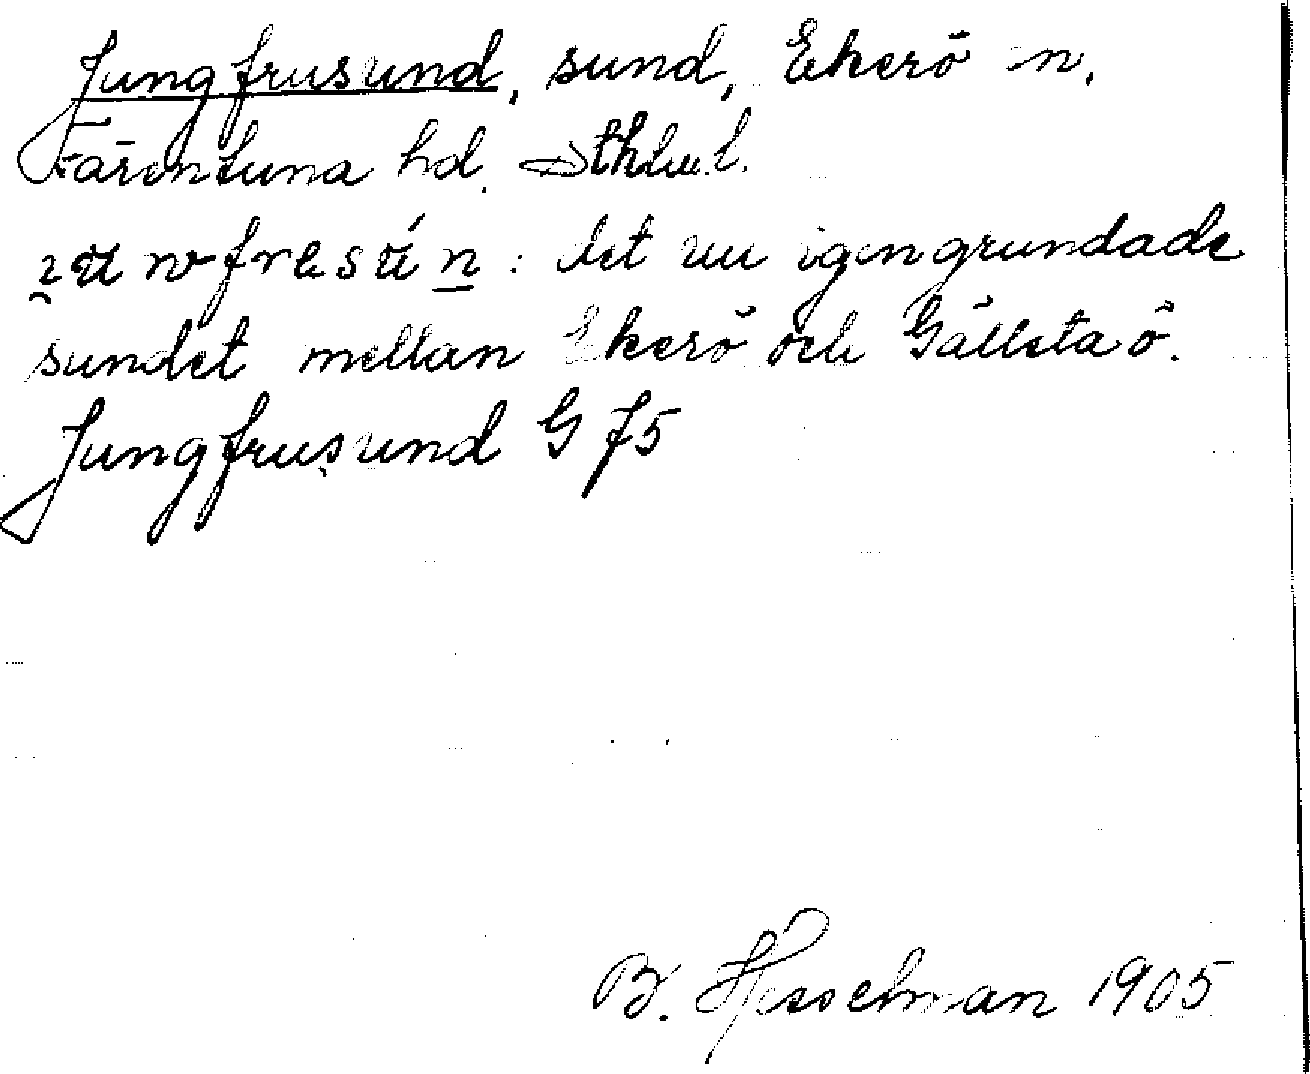 Jungfrusund, sund, Ekerö sn,
Färentuna hd. Sthlms l.
det nu igengrundade
sundet mellan Ekerö och Gällstaö.
Jungfrusund G 75
B. Hesselman 1905